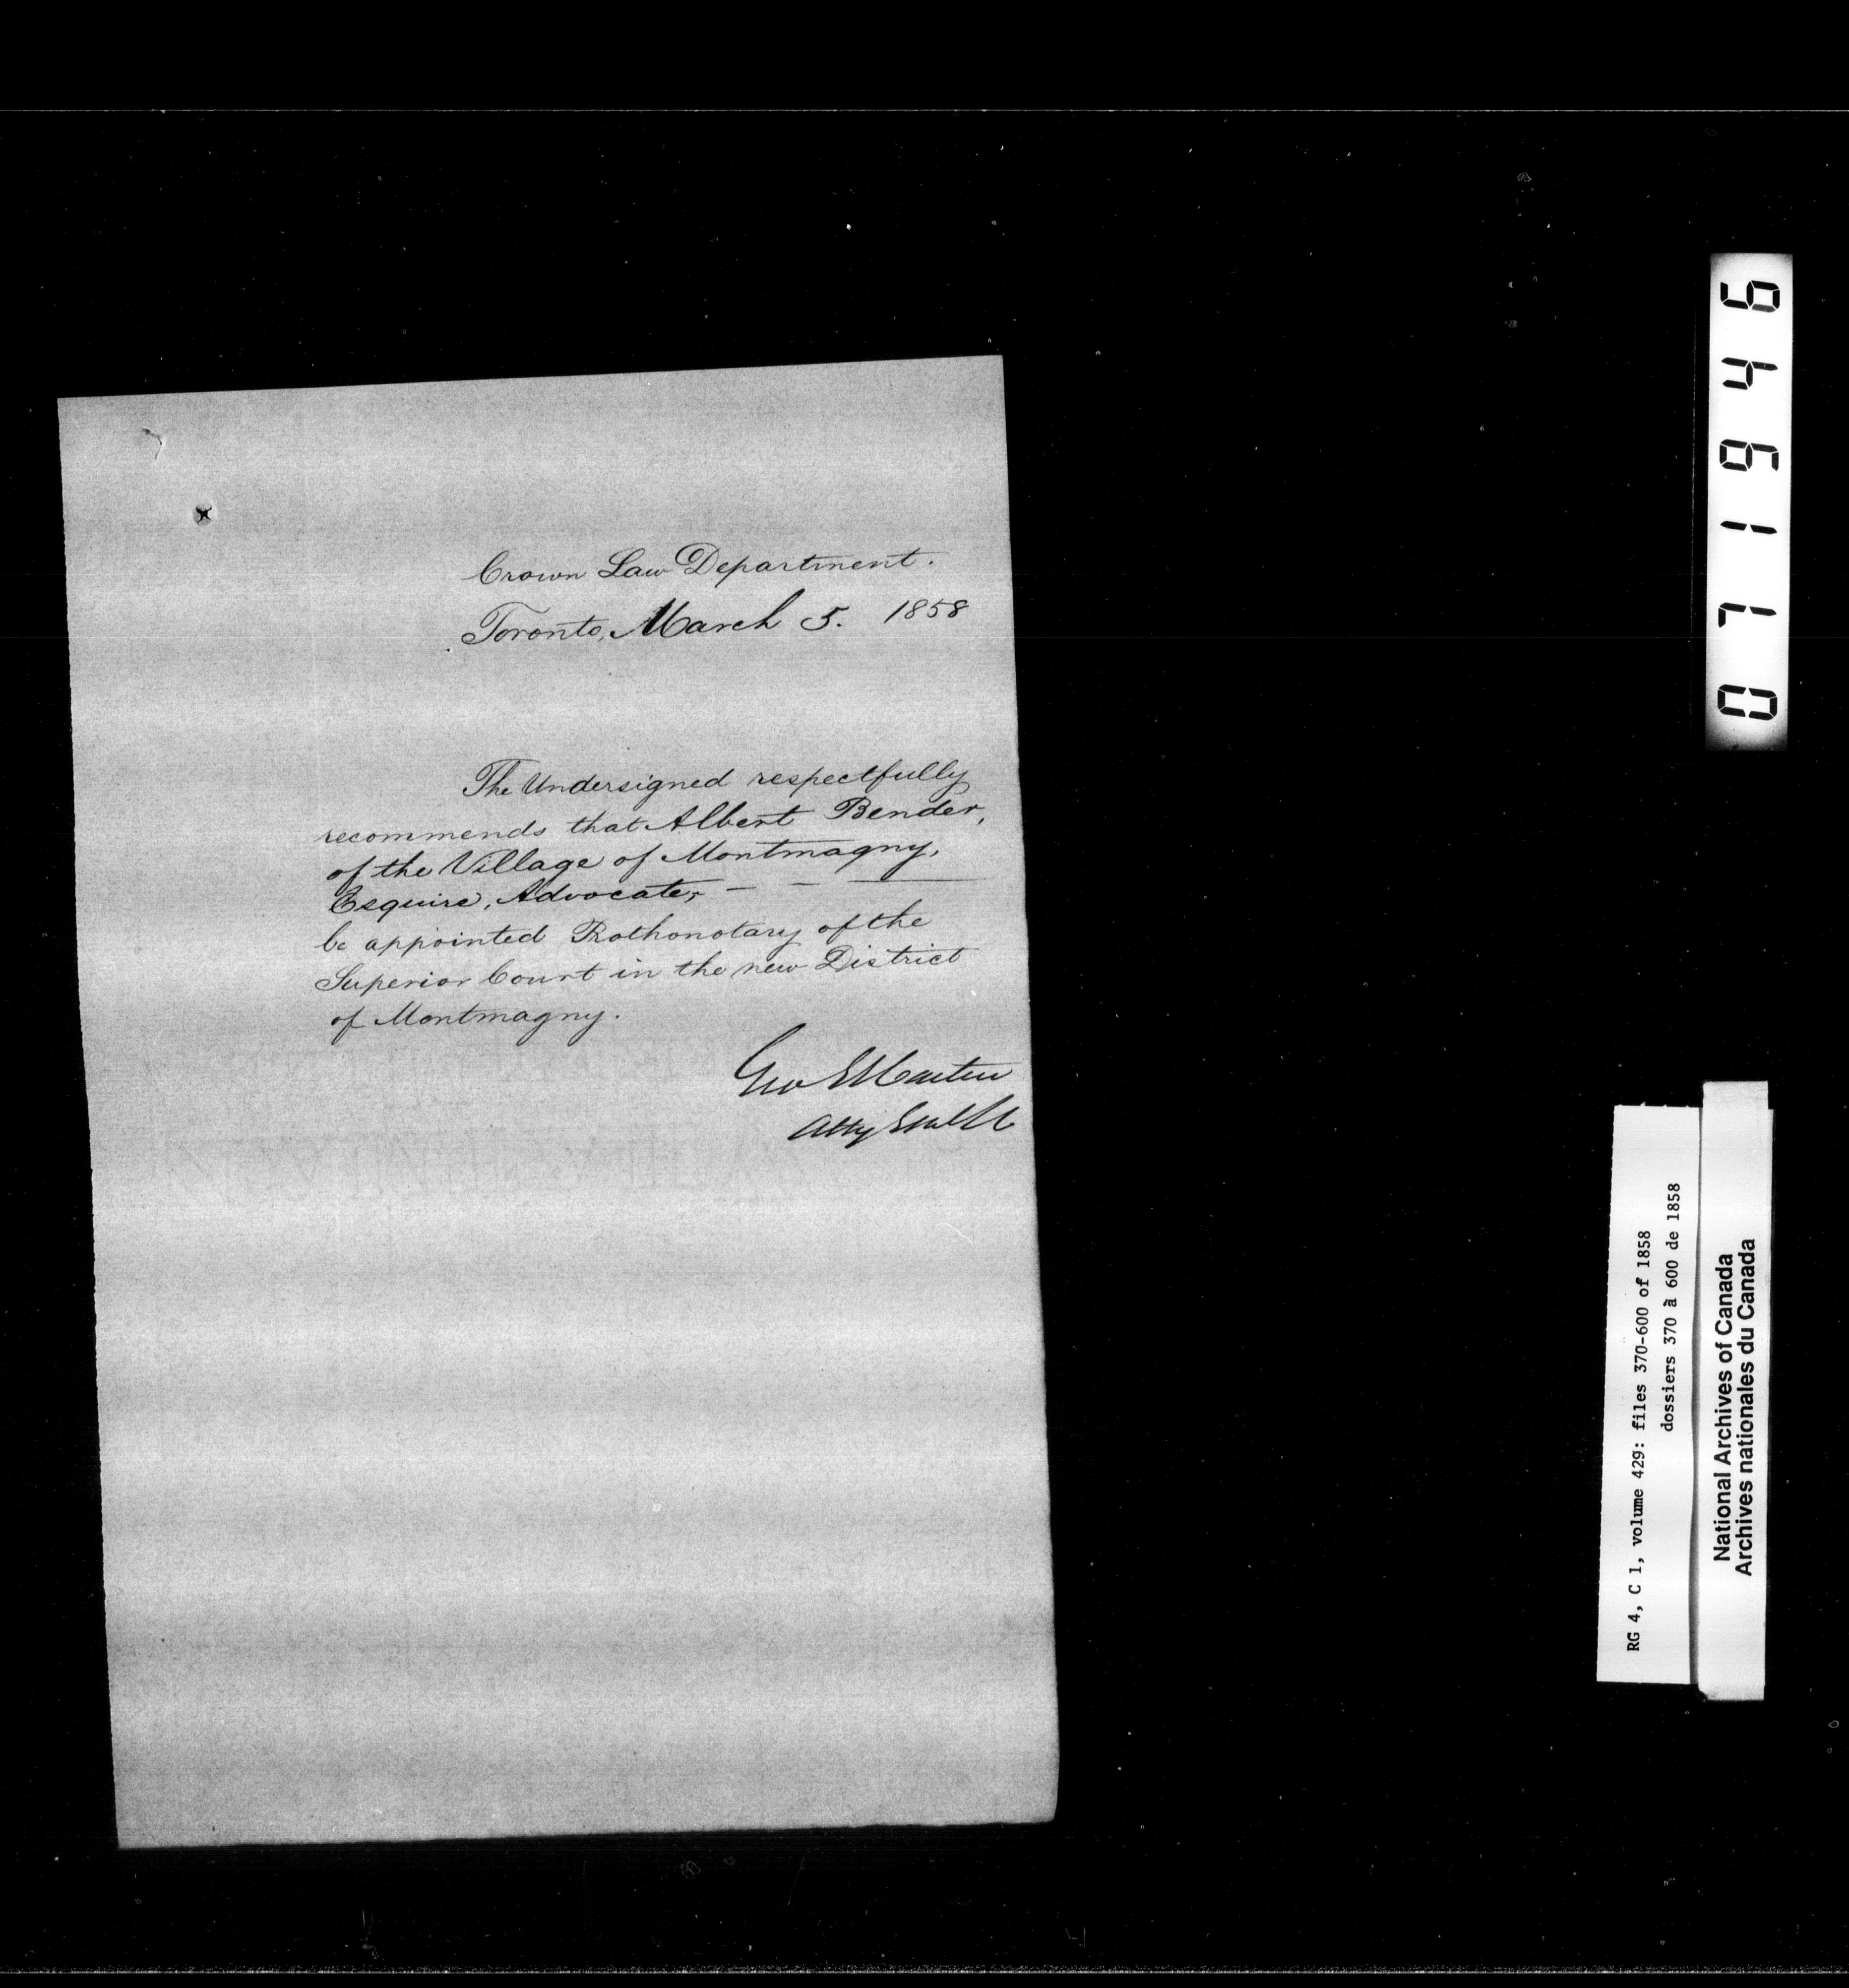 Crown Law Department.
Toronto, March 5. 1858
The Undersigned respectfully
recommends that Albert Bender,
of the Village of Montmagny,
Esquire, Advocate, — — —
be appointed Prothonotary of the
Superior Court in the new District
of Montmagny.
Geo E Cartier
Atty Genl LC
071946
RG 4, C 1, volume 429: files 370-600 of 1858
dossiers 370 à 600 de 1858
National Archives of Canada
Archives nationales du Canada